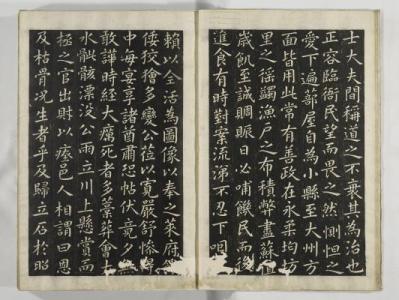 士大夫間稱道之不衰其為治也
正容臨衙民望而畏之然惻怛之
愛下遍蔀屋自為小縣至大州方
面皆用此常有善政在永柔均坊
里之徭蠲漁戶之布積弊盡蘇
歲飢至誠賙賑日必哺餽民而後
進食有時對案流涕不忍下咽
賴以全活為圖像以奉之萊府
倭狡獪多變公莅以寬嚴舒慘得
中每宴享諸酋肅恐帖伏竟夕
敢譁時經大厲死者多藁葬會
水骴骸漂没公雨立川上縣之賞而
拯之官出財以瘞邑人相謂曰恩
及枯骨况生者乎及歸立石於昭